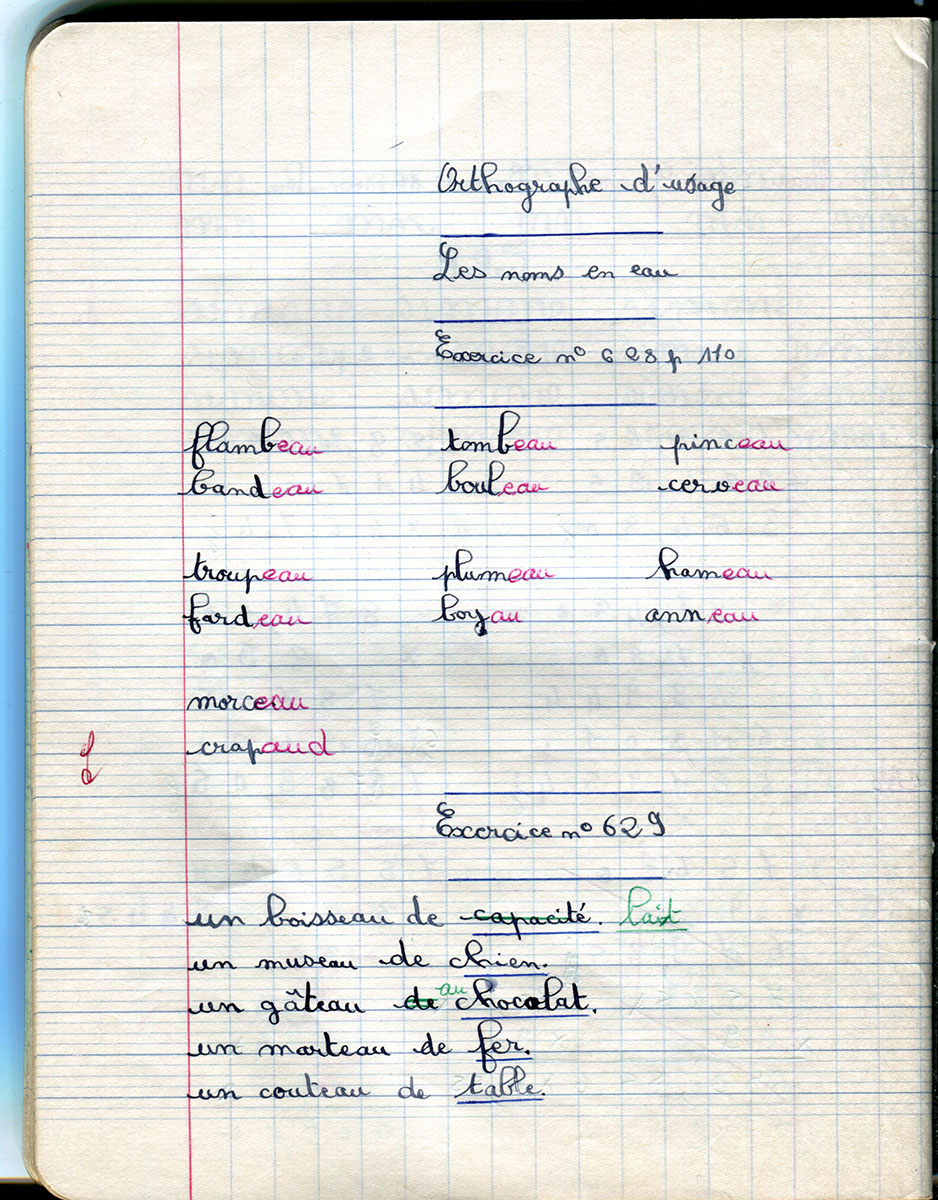 Orthographe d'usage
Les noms en eau
Exercice n° 628 p 110
flambeau tombeau pinceau
bandeau bouleau cerveau
troupeau plumeau hameau
fardeau boyau anneau
morceau
crapaud
Exercice n° 629
un boisseau de capacité. lait
un museau de chien.
un gâteau de au chocolat.
un marteau de fer.
un couteau de table.